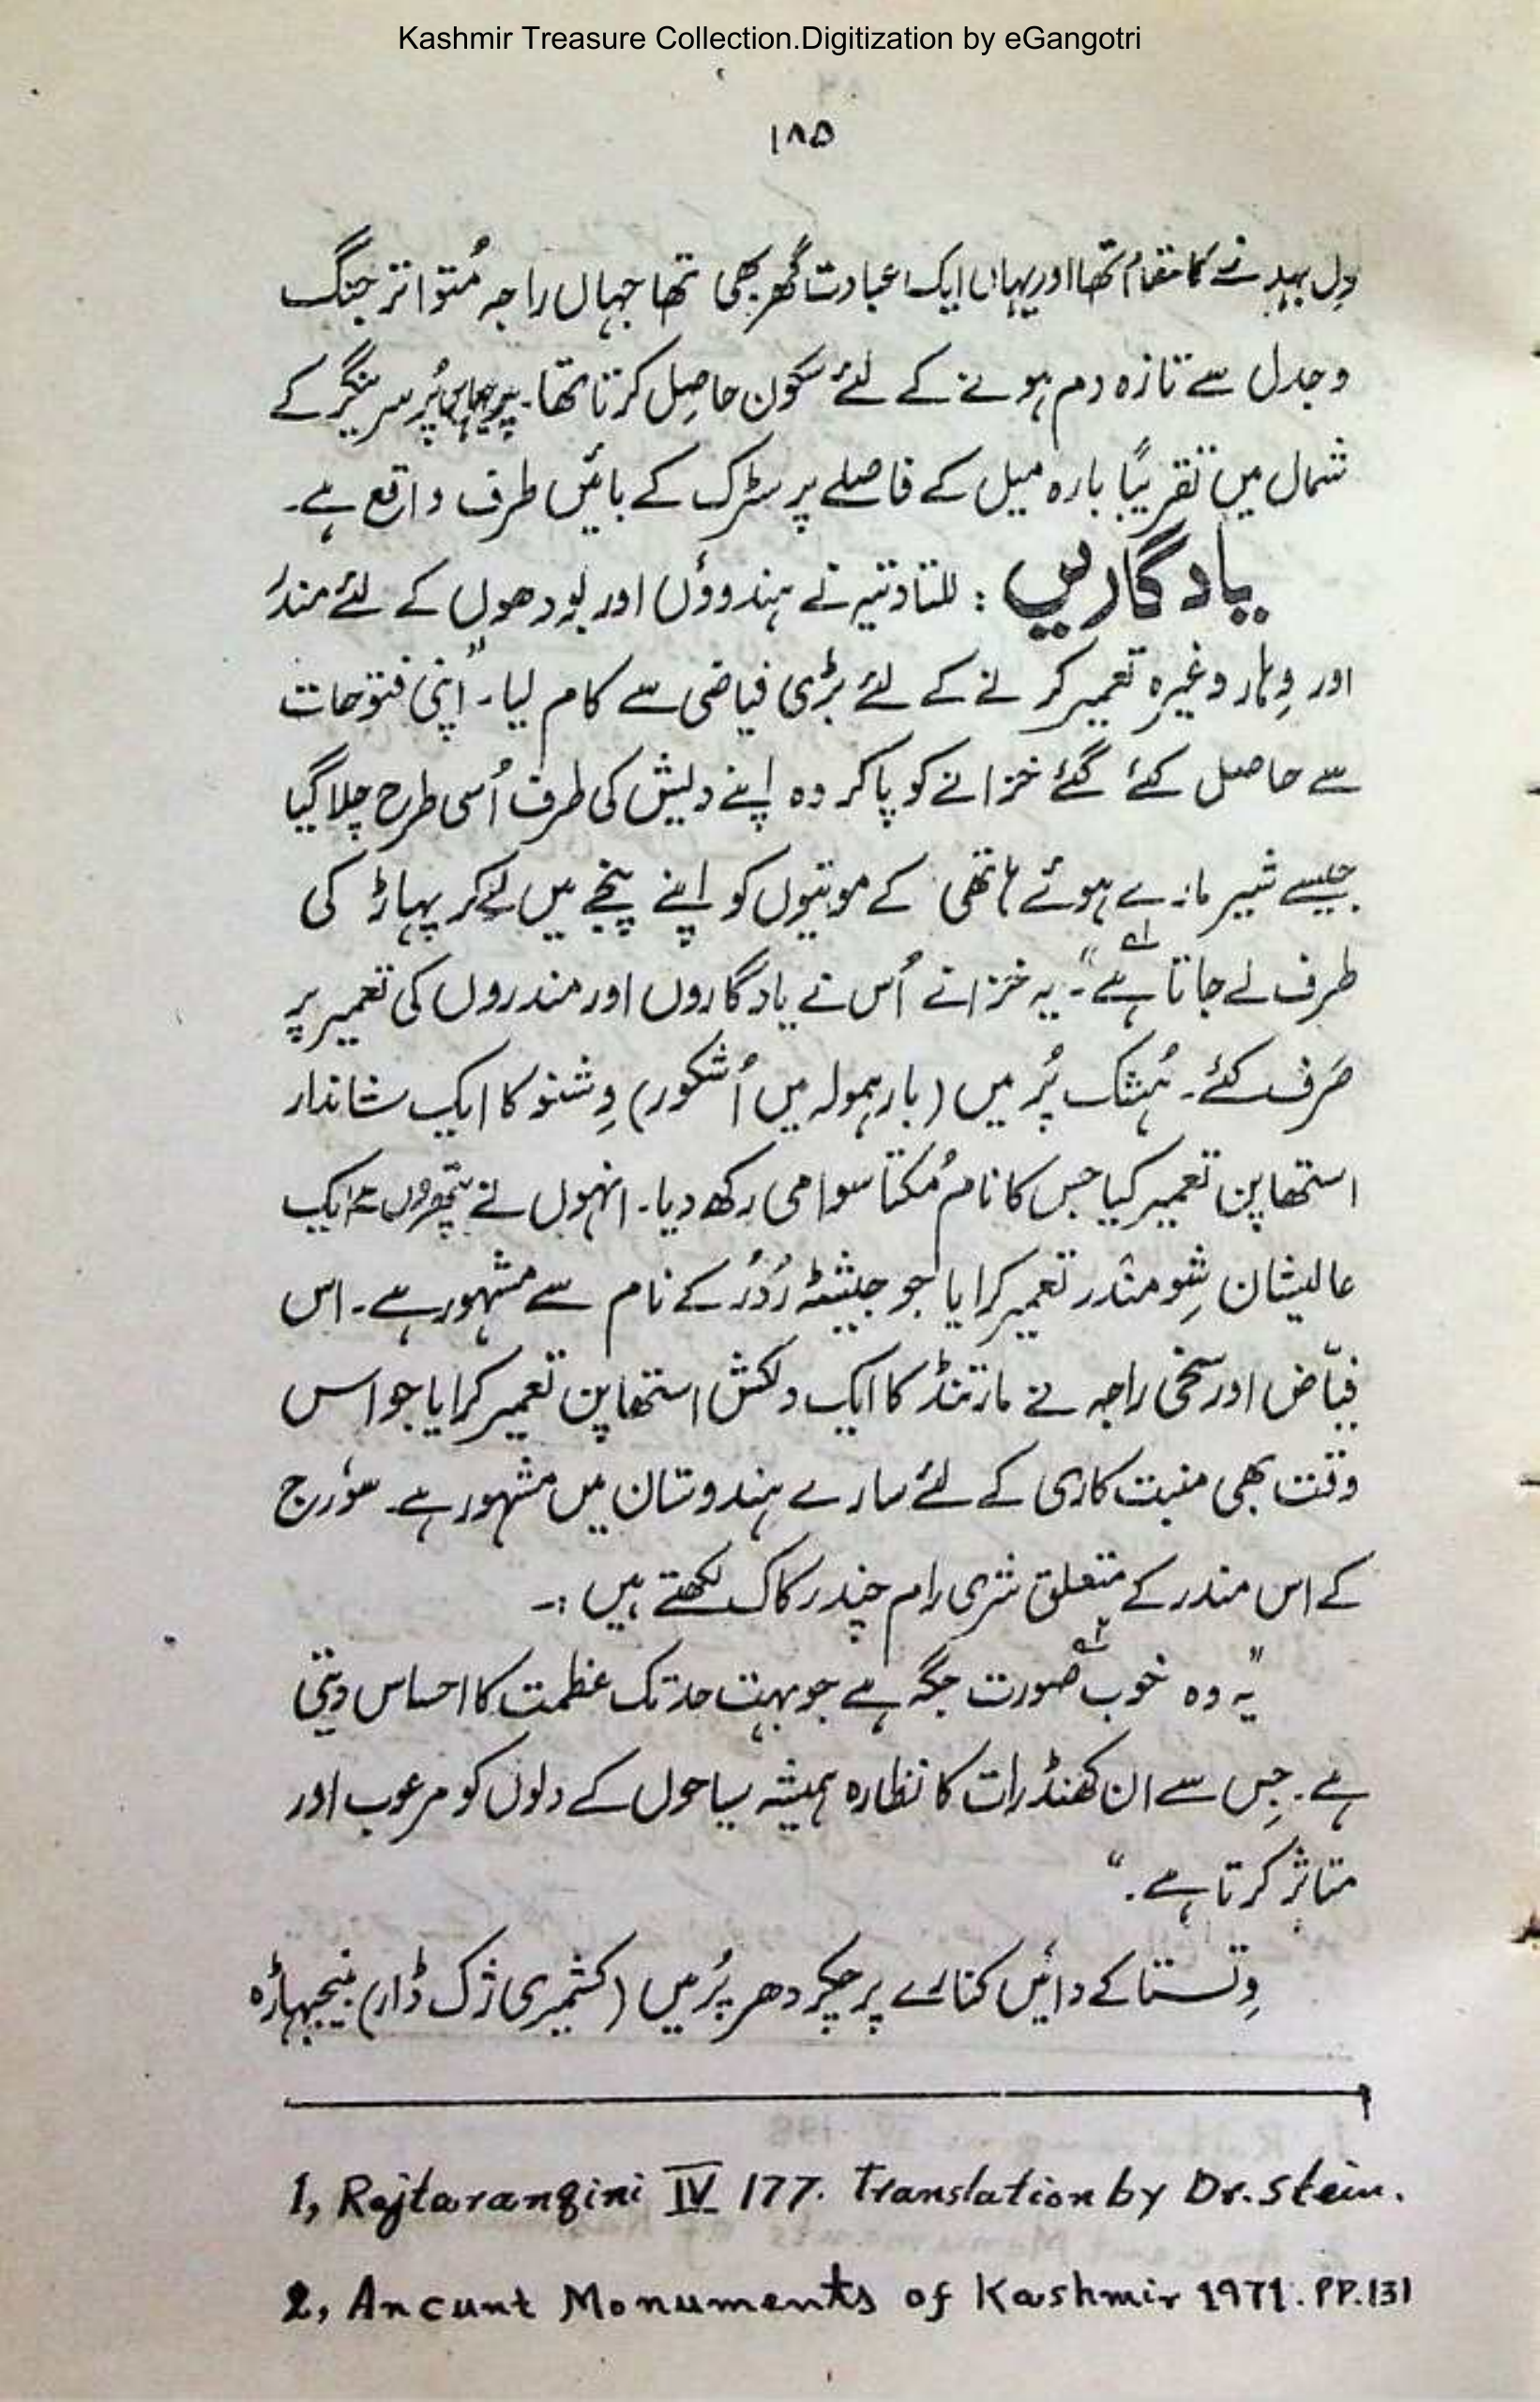 Kashmir Treasure Collection.Digitization by eGangotri
۱۸۵
دِل بہلانے کا مقام تھا اور یہاں ایک عبادت گھر بھی تھا جہاں راجہ مُتواتر جنگ
و جدل سے تازہ دم ہونے کے لئے سکون حاصِل کرتا تھا۔ پریہاس پُر سرینگر کے
شمال میں تقریبًا بارہ میل کے فاصلے پر سڑک کے بائیں طرف واقع ہے۔
یادگاریں : للتادتیہ نے ہندوؤں اور بودھوں کے لئے مندر
اور وِہار وغیرہ تعمیر کرنے کے لئے بڑی فیاضی سے کام لیا۔ "اپنی فتوحات
سے حاصل کئے گئے خزانے کو پاکر وہ اپنے دیش کی طرف اُسی طرح چلا گیا
جیسے شیر مارے ہوئے ہاتھی کے موتیوں کو اپنے پنجے میں لےکر پہاڑ کی
طرف لے جاتا ہے"۱؎۔ یہ خزانے اُس نے یادگاروں اور مندروں کی تعمیر پر
صَرف کئے۔ ہُشک پُر میں (بارہمولہ میں اُشکور) وِشنو کا ایک شاندار
استھاپن تعمیر کیا جس کا نام مُکتا سوامی رکھ دیا۔ انہوں نے پتھروں سے ایک
عالیشان شِو مندر تعمیر کرایا جو جیشٹھ رُدُر کے نام سے مشہور ہے۔ اس
فیّاض اور سخی راجہ نے مارتنڈ کا ایک دلکش استھاپن تعمیر کرایا جو اس
وقت بھی منبت کاری کے لئے سارے ہندوستان میں مشہور ہے۔ سوُرج
کے اس مندر کے متعلق شری رام چندر کاک لکھتے ہیں :۔
"یہ وہ خوب صورت۲؎ جگہ ہے جو بہت حد تک عظمت کا احساس دیتی
ہے۔ جِس سے ان کھنڈرات کا نظارہ ہمیشہ سیاحوں کے دلوں کو مرعوب اور
متاثر کرتا ہے۔"
وِتستا کے دائیں کنارے پر چکر دھر پُر میں (کشمیری ژک ڈار) بیجبہاڑہ
1, Rajtarangini IV 177. Translation by Dr. Stein.
2, Ancunt Monuments of Kashmir 1971. PP.131